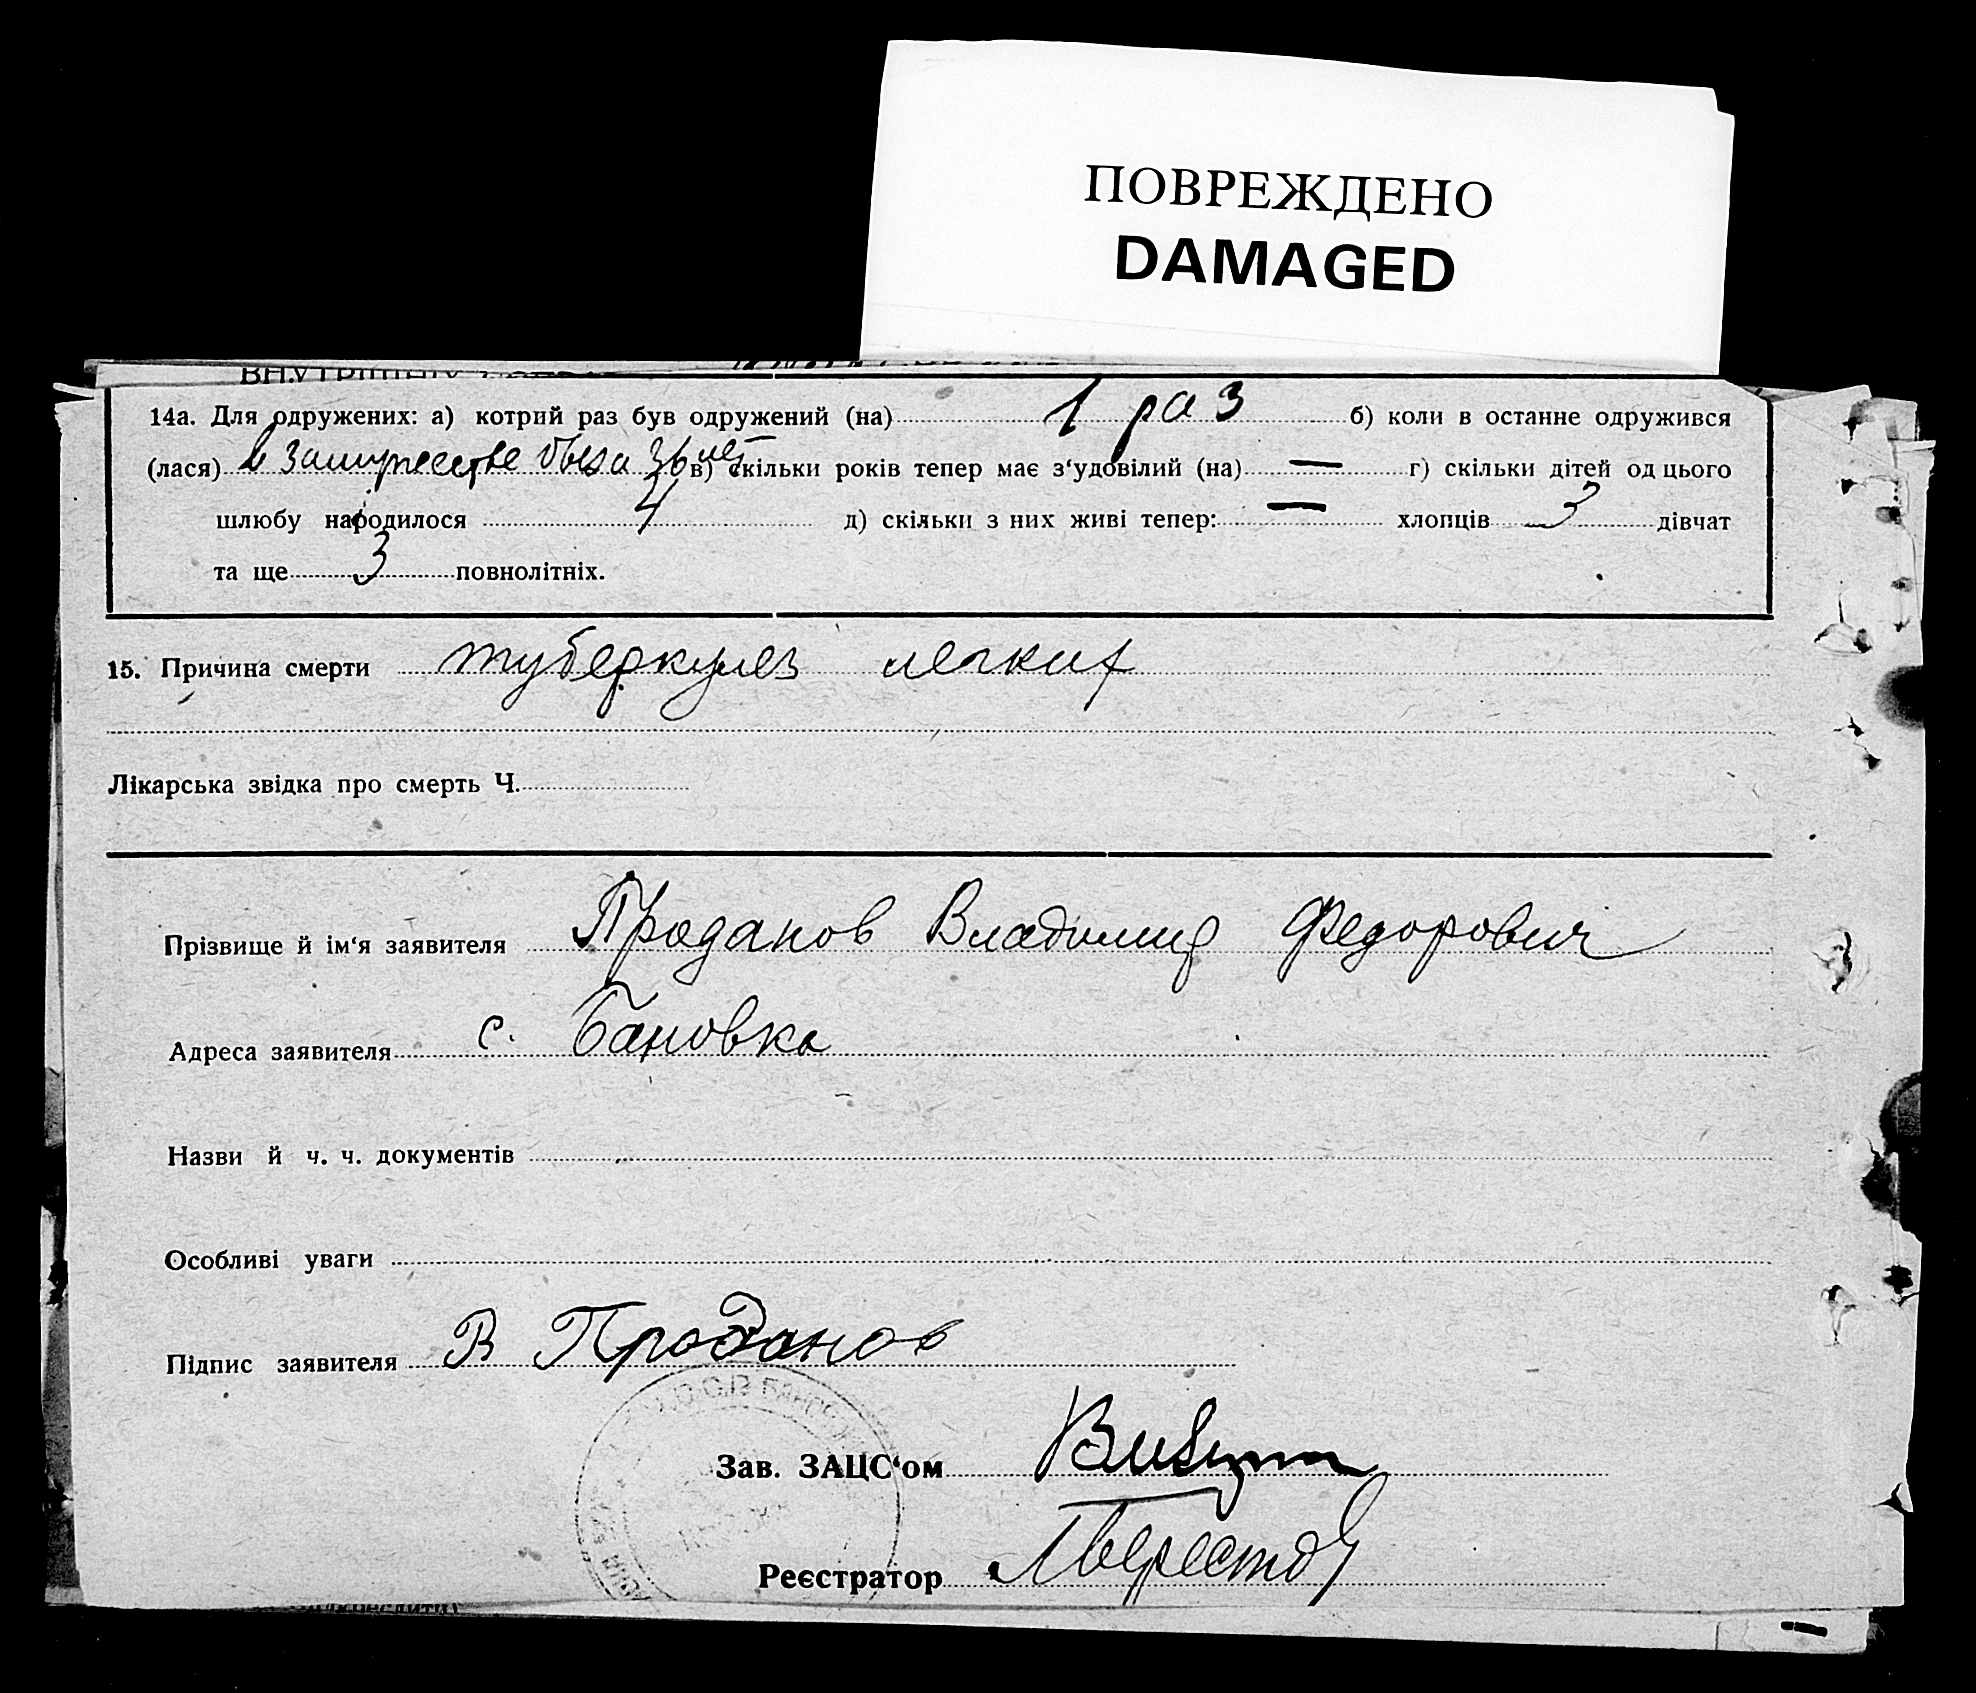 ПОВРЕЖДЕНО
DAMAGED
14а. Для одружених: а) котрий раз був одружений (на) 1 раз б) коли в останне одружився
(лася) в замужестве была 36 лет в) скільки років тепер має з‘удовілий (на) — г) скільки дітей од цього
шлюбу народилося 4 д) скільки з них живі тепер: — хлопців 3 дівчат
та ще 3 повнолітніх.
15. Причина смерти туберкулез легких
Лікарська звідка про смерть Ч.
Прізвище й ім‘я заявителя Проданов Владимир Федорович
Адреса заявителя с. Бановка
Назви й ч. ч. документів
Особливі уваги
Підпис заявителя В Проданов
Зав. ЗАЦС‘ом
Реєстратор